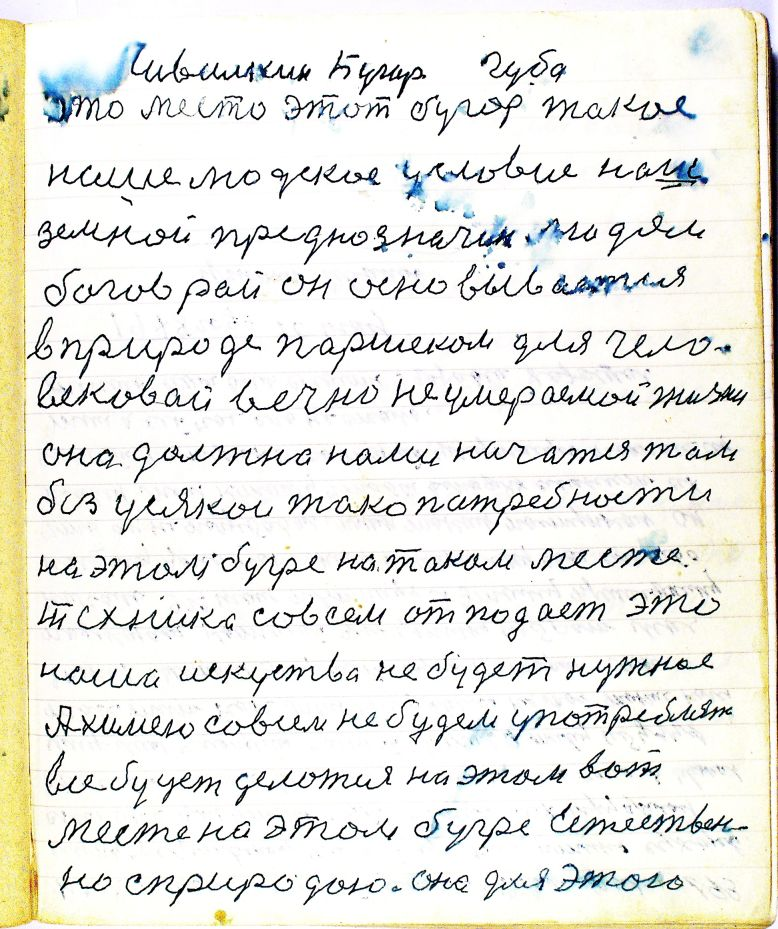 Чивилкин Бугор. Губа
это место этот бугор такое
наше людское условие наш
земной предназначин людям
богов рай он основывается
в природе паршеком для чело-
вековай вечно неумераемой жизни
она должна нами начатся там
без усякой тако патребности
на этом бугре на таком месте.
техника совсем отподает это
наша искуства не будет нужное
А химею совсем не будем употреблят
все будет делатся на этом вот
месте на этом бугре Естествен-
но с природою. она для этого